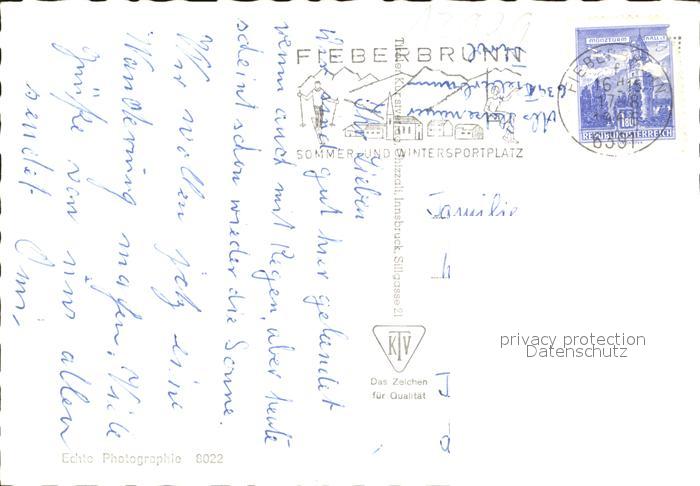 Ihr Lieben
Wir sind gut hier gelandet
wenn auch mit Regen, aber heute
scheint schon wieder die Sonne.
Wir wollen jetz eine
Wanderung machen. Viele
Grüße von uns allen
sendet Omi,
6391 Fieberbrunn
FIEBERBRUNN
SOMMER- UND WINTERSPORTPLATZ
MÜNZTURM HALL I.T.
REPUBLIK ÖSTERREICH
FIEBERBRUNN
6391
Familie
Innsbruck, Sillgasse 21
KTV
Das Zeichen
für Qualität
Echte Photographie 8022
privacy protection
Datenschutz